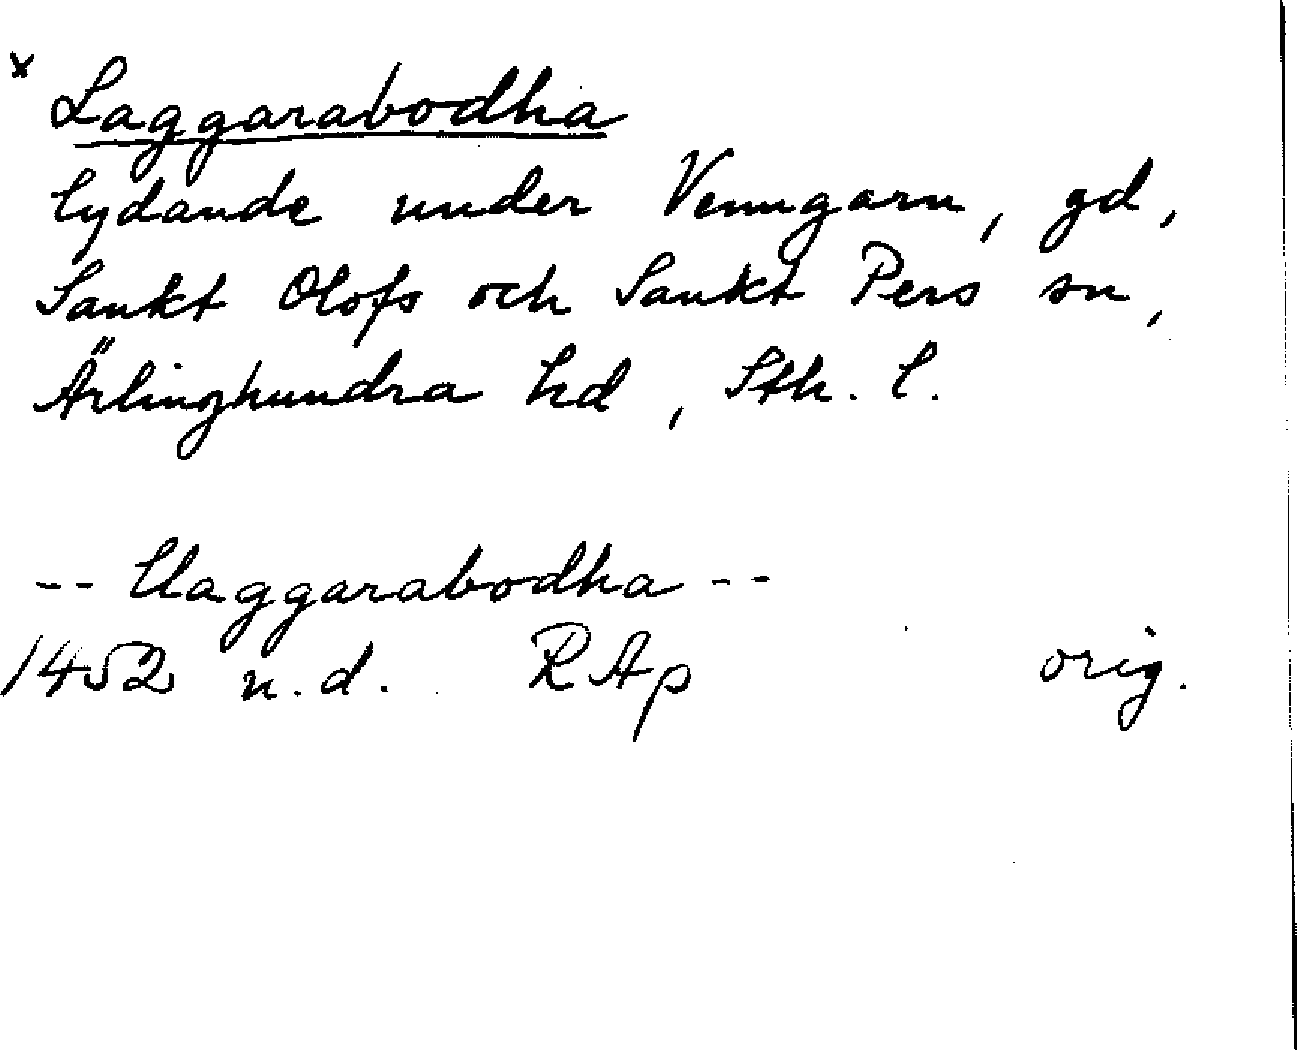 x Laggarabodha
lydande under Venngarn, gd,
Sankt Olofs och Sankt Pers sn,
Ärlinghundra hd, Sth. l.
-- Llaggarabodha --
1452 n.d. RAp orig.